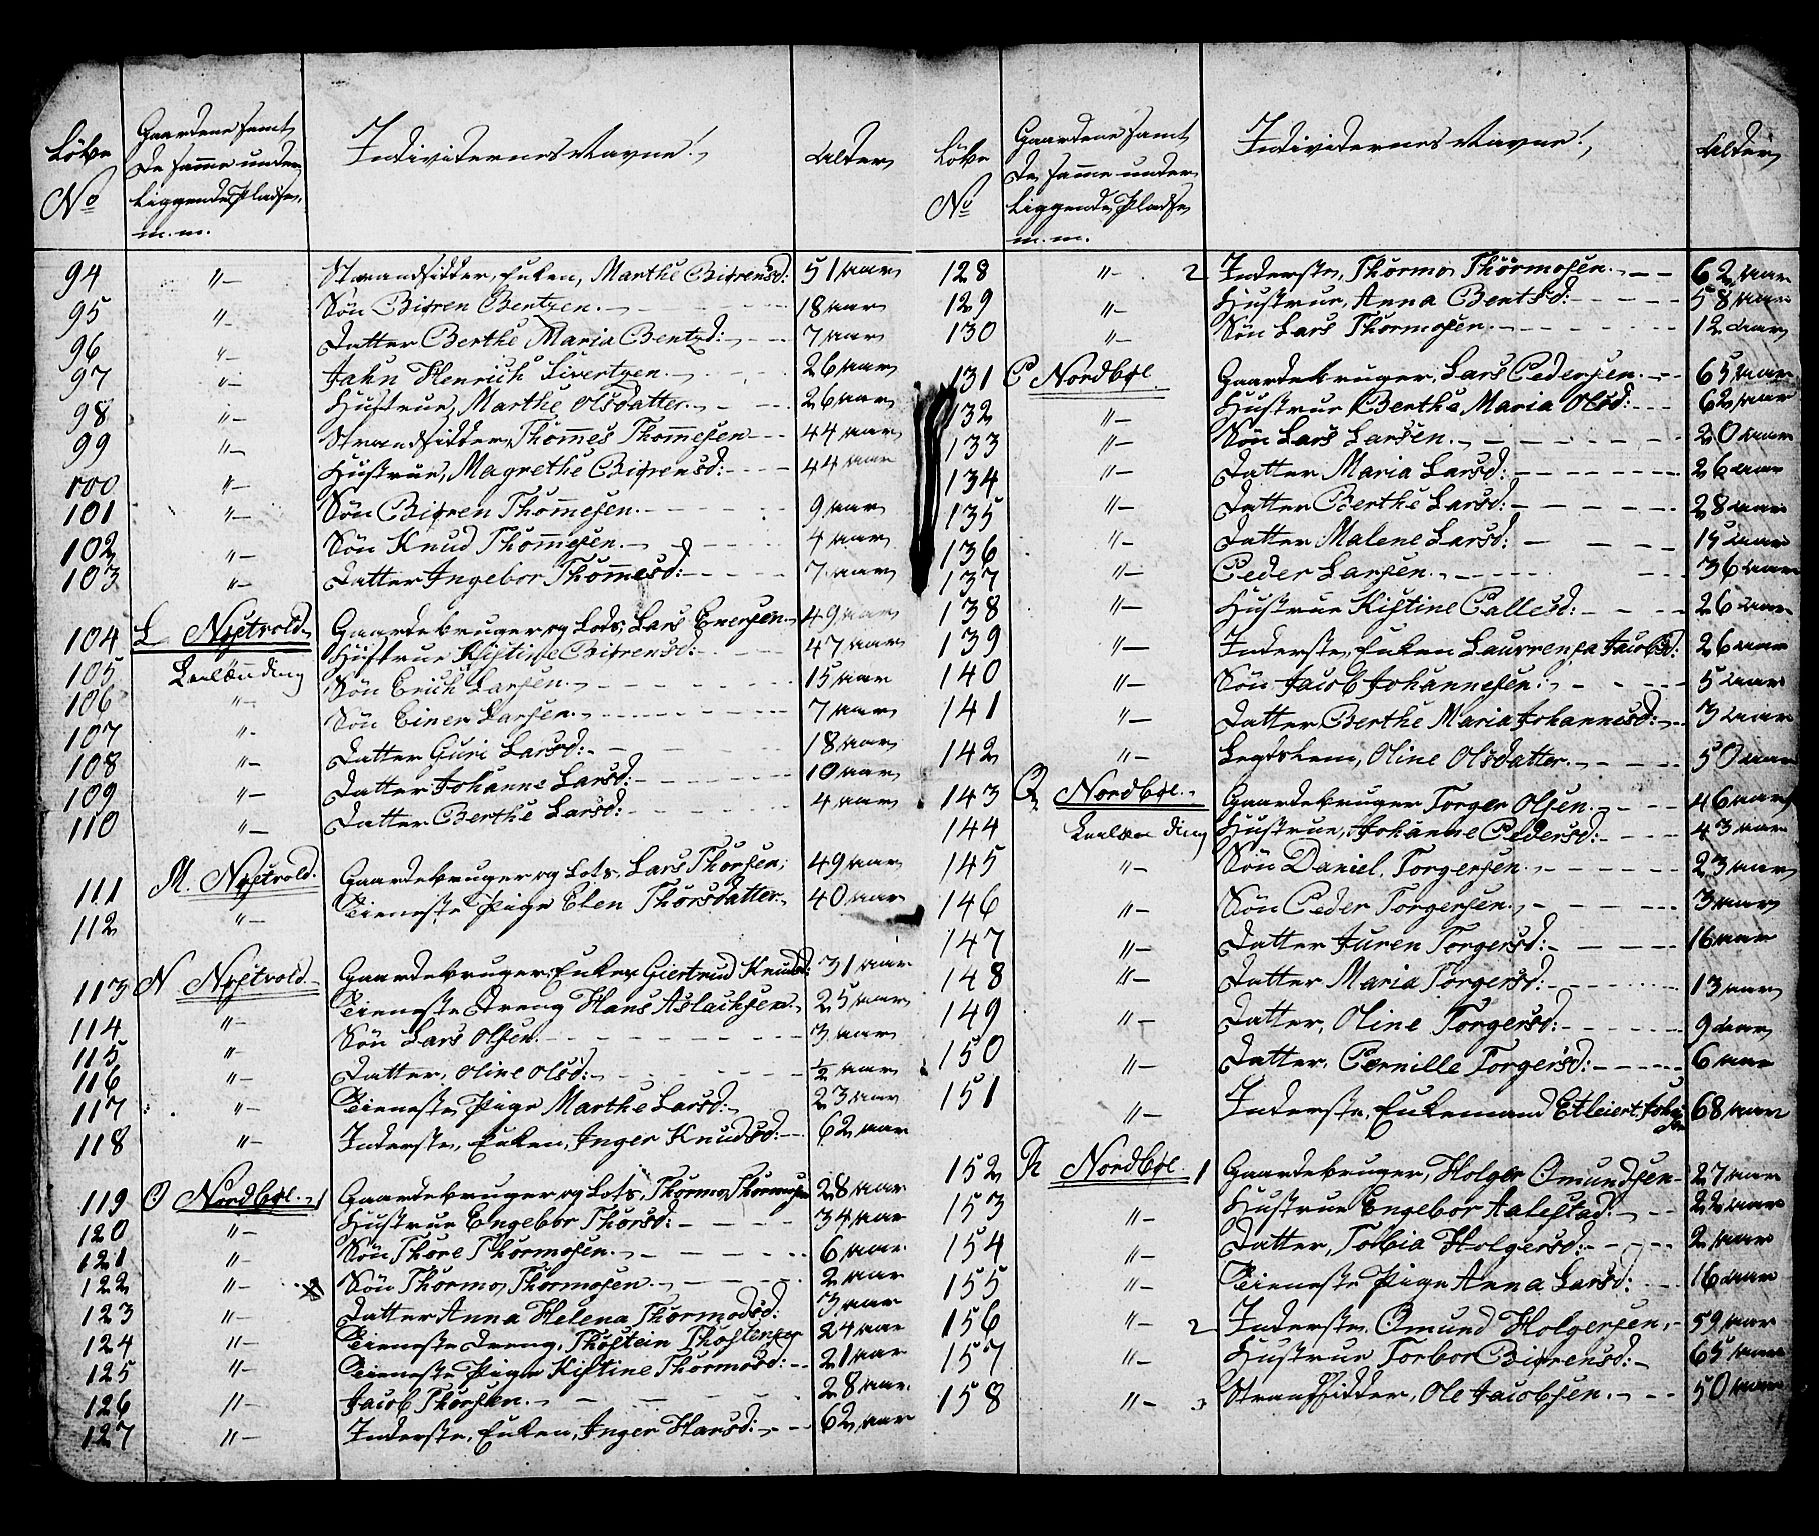 Löbe No | Gaardene samt De samme under Liggende Pladse m.m. | Individernes Navne | Alder
94 "— Strandsidder, Enken, Marthe Biørensd: 51 aar
95 "— Søn Biøren Bentzen 18 aar
96 "— Datter Berthe Maria Bentzd: 7 aar
97 "— Jahn Henrich Sivertzen 26 aar
98 "— Hustrue, Marthe Olsdatter 26 aar
99 "— Strandsidder, Thommes Thommesen 44 aar
100 "— Hustrue, Magrethe Biørensd: 44 aar
101 "— Søn Biøren Thommesen 9 aar
102 "— Søn Knud Thommesen 4 aar
103 "— Datter Ingebor Thommesd: 7 aar
104 L Nøstvold Gaardebruger og Lots, Lars Enersen 49 aar
105 Hustrue Kistine Biørensd: 47 aar
106 "— Søn Erich Larsen 15 aar
107 "— Søn Einer Larsen 7 aar
108 "— Datter Guri Larsd: 18 aar
109 "— Datter Johanne Larsd: 10 aar
110 "— Datter Berthe Larsd: 4 aar
111 M. Nøstvold Gaardebruger og Lots, Lars Thorsen 49 aar
112 "— Tieneste Pige Elen Thorsdatter 40 aar
113 N Nøstvold Gaardebruger, Enke Giertrud Knudsd: 31 aar
114 "— Tieneste Dreng Hans Aslachsen 25 aar
115 "— Søn Lars Olsen 3 aar
116 "— Datter, Oline Olsd: ½ aar
117 "— Tieneste Pige Marthe Larsd: 23 aar
118 "— Inderste, Enken, Inger Knudsd: 62 aar
119 O Nordbøe 1 Gaardebruger og Lots, Thormo Thormosen 28 aar
120 "— Hustrue Engebor Thorsd: 34 aar
121 "— Søn Thore Thormosen 6 aar
122 "— Søn Thormo Thormosen 2 aar
123 "— Datter Anna Helena Thormodsd: 3 aar
124 "— Tieneste Dreng, Thostein Thostensen 24 aar
125 "— Tieneste Pige Kistine Thormosd: 21 aar
126 "— Jacob Thorsen 28 aar
127 "— Inderste, Enken, Inger Hansd: 62 aar
Löbe No | Gaardene samt De samme under Liggende Pladse m.m. | Individernes Navne | Alder
128 "— 2 Inderste, Thormo Thormosen 62 aar
129 "— Hustrue, Anna Bentsd: 58 aar
130 "— Søn Lars Thormosen 12 aar
131 P Nordbøe Gaardebruger, Lars Pedersen 65 aar
132 "— Hustrue Berthe Maria Olsd: 62 aar
133 "— Søn Lars Larsen 20 aar
134 "— Datter Maria Larsd: 26 aar
135 "— Datter Berthe Larsd: 28 aar
136 "— Datter Malene Larsd: 15 aar
137 "— Peder Larsen 36 aar
138 "— Hustrue Kistine Pallesd: 26 aar
139 "— Inderste, Enken Laurensa Jacobsd: 26 aar
140 "— Søn Jacob Johannesen 5 aar
141 "— Datter Berthe Maria Johannesd: 3 aar
142 "— Legdslem, Oline Olsdatter 50 aar
143 Q Nordbøe Gaardebruger Torger Olsen 46 aar
144 Hustrue, Johanne Pedersd: 43 aar
145 "— Søn Daniel Torgersen 23 aar
146 "— Søn Peder Torgersen 3 aar
147 "— Datter Juren Torgersd: 16 aar
148 "— Datter Maria Torgersd: 13 aar
149 "— Datter, Oline Torgersd: 9 aar
150 "— Datter, Pernille Torgersd: 6 aar
151 "— Inderste, Enkemand 68 aar
152 R Nordbøe 1 Gaardebruger, Holger Omundsen 27 aar
153 "— Hustrue Engebor Aalestad 22 aar
154 "— Datter, Tobia Holgersd: 2 aar
155 "— Tieneste Pige Anna Larsd: 16 aar
156 "— 2 Inderste, Omund Holgersen 59 aar
157 "— Hustrue Torbor Biørensd: 65 aar
158 "— 3 Strandsidder, Ole Jacobsen 50 aar